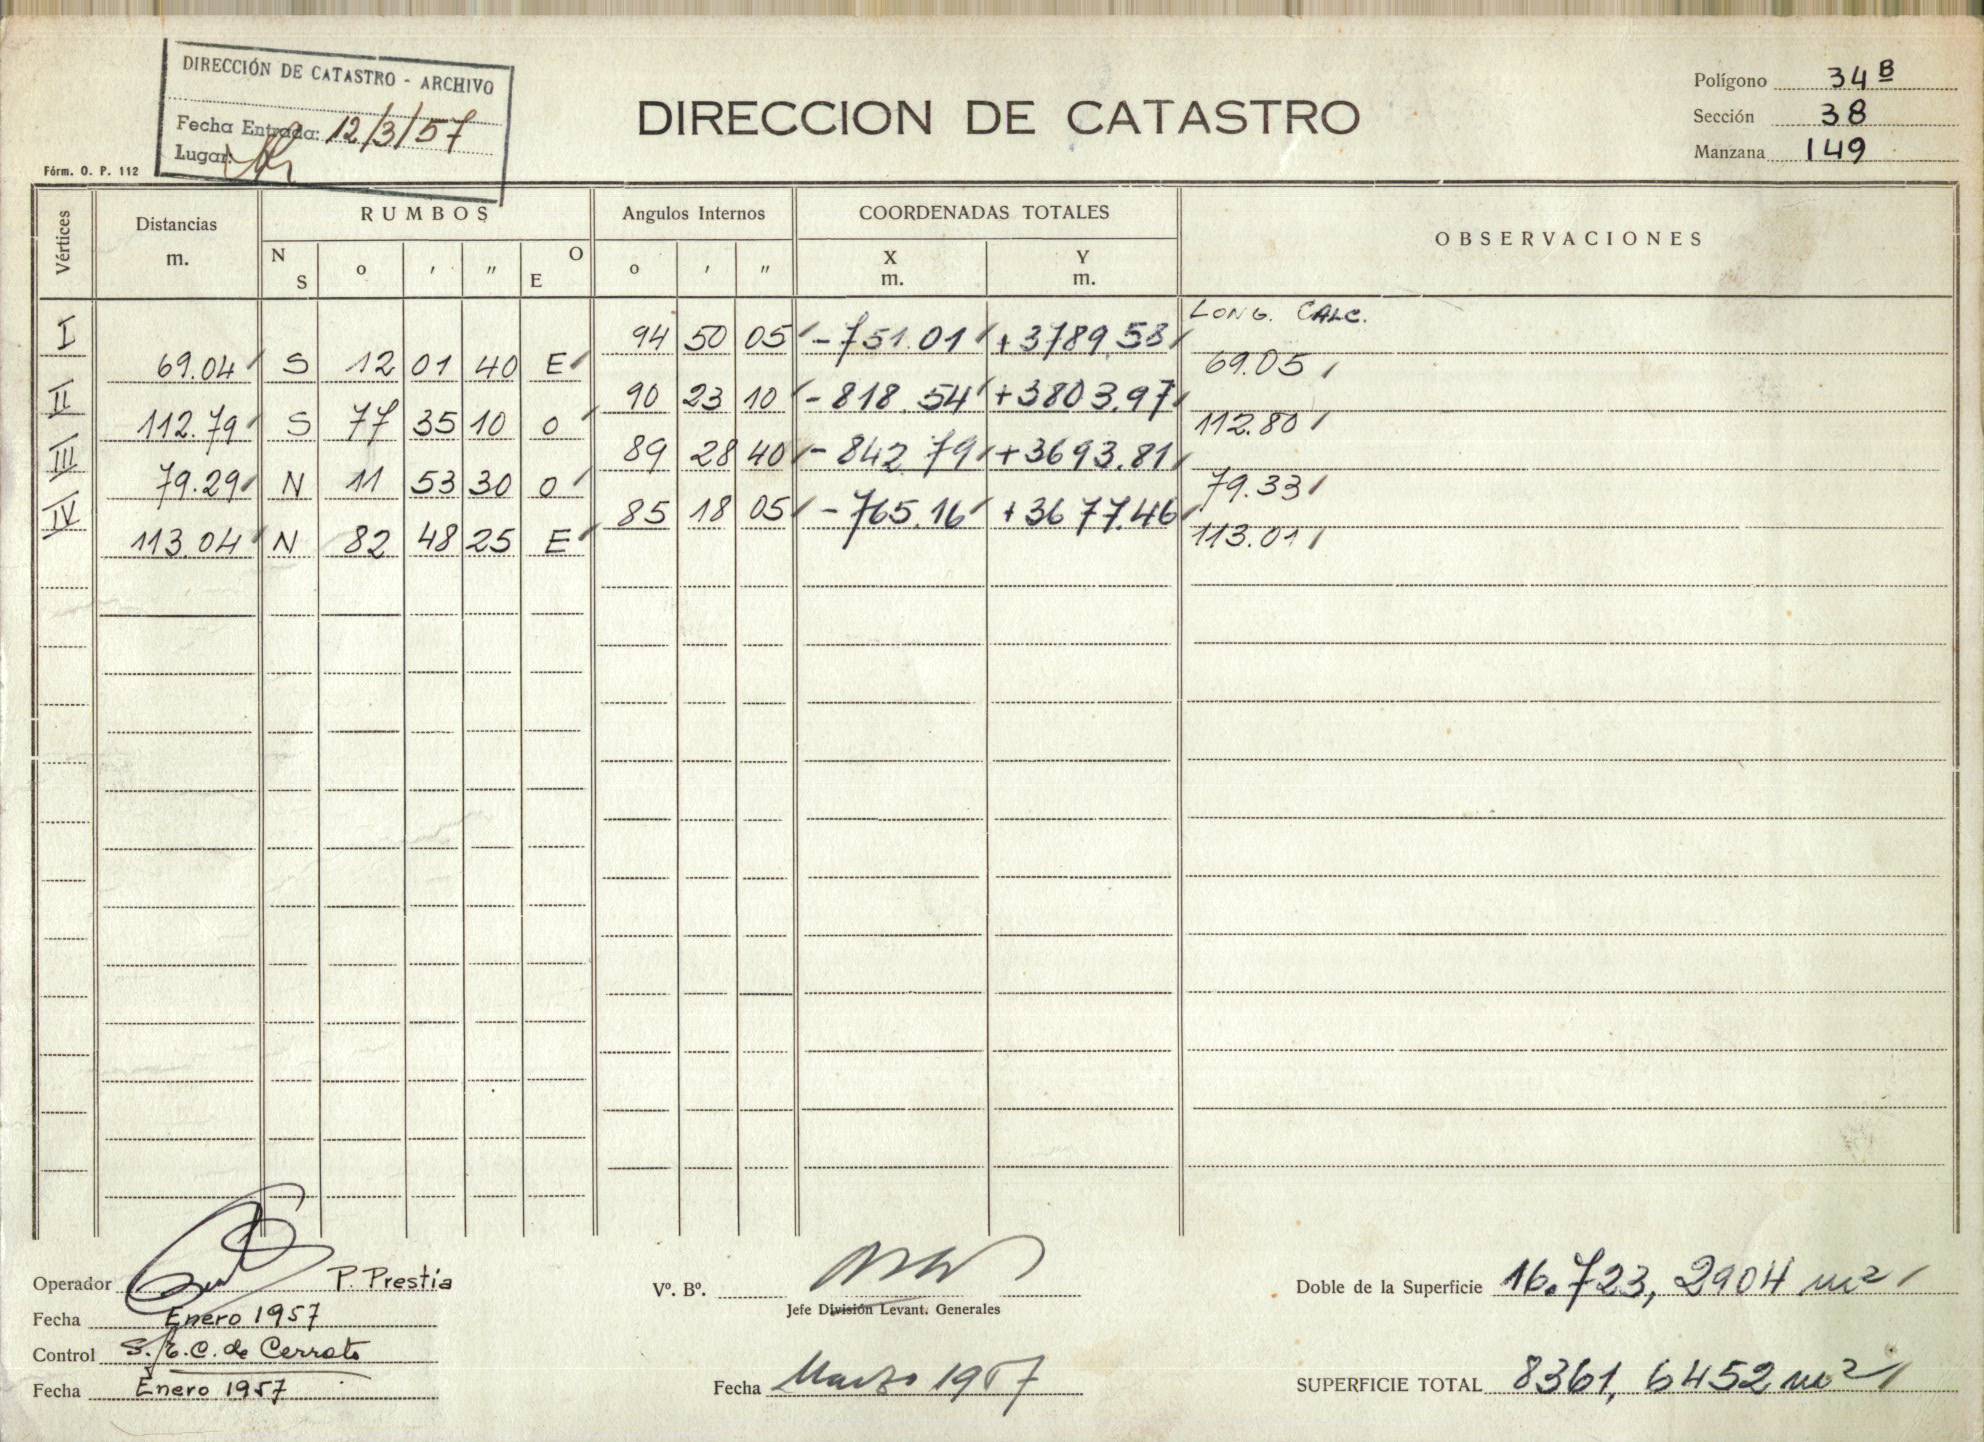 DIRECCIÓN DE CATASTRO - ARCHIVO
Fecha Entrada: 12/3/57
Lugar:
Fórm. O. P. 112
DIRECCION DE CATASTRO
Polígono 34 B
Sección 38
Manzana 149
Vértices Distancias m. RUMBOS Angulos Internos COORDENADAS TOTALES OBSERVACIONES
N S o ' " O E o ' " X m. Y m.
LONG. CALC.
I 94 50 05 -751.01 +3789.58
69.04 S 12 01 40 E 69.05
II 90 23 10 -818.54 +3803.97
112.79 S 77 35 10 O 112.80
III 89 28 40 -842.79 +3693.81
79.29 N 11 53 30 O 79.33
IV 85 18 05 -765.16 +3677.46
113.04 N 82 48 25 E 113.01
Operador P. Prestia
Fecha Enero 1957
Control S. E. C. de Cerrato
Fecha Enero 1957
Vº. Bº.
Jefe División Levant. Generales
Fecha Marzo 1957
Doble de la Superficie 16.723, 2904 m2
SUPERFICIE TOTAL 8361, 6452 m2